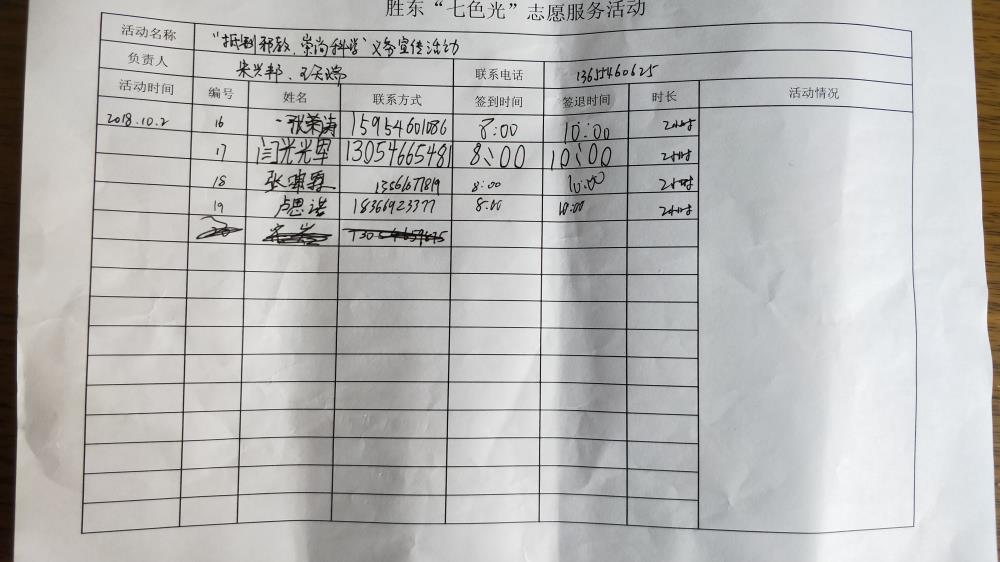 胜东“七色光”志愿服务活动
活动名称 “抵制邪教、崇尚科学”义务宣传活动
负责人 宋兴邦、王天瑞 联系电话 13655460625
活动时间 编号 姓名 联系方式 签到时间 签退时间 时长 活动情况
2018.10.2 16 张荣涛 15954601086 8:00 10:00 2小时
17 闫光军 13054665481 8:00 10:00 2小时
18 张霖 13561677819 8:00 10:00 2小时
19 卢思诺 18366923377 8:00 10:00 2小时